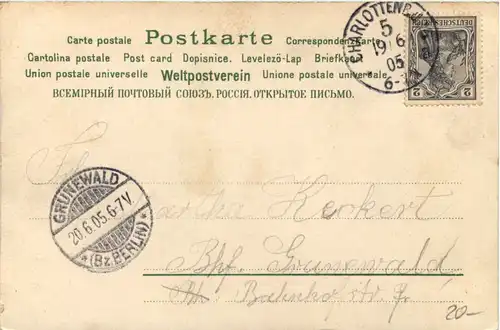 Carte postale Postkarte Correspondenzkarte
Cartolina postale Post card Dopisnice. Levelezö-Lap Briefkaart
Union postale universelle Weltpostverein Unione postale universale
ВСЕМІРНЫЙ ПОЧТОВЫЙ СОЮЗЪ. РОССІЯ. ОТКРЫТОЕ ПИСЬМО.
CHARLOTTENBURG
5
19 6
05
6-7
DEUTSCHES REICH
2 2
GRUNEWALD
20.6.05.6-7V.
*(Bz.BERLIN)*
Martha Herkert
Bhf. Grunewald
Bahnhofstr.
20-